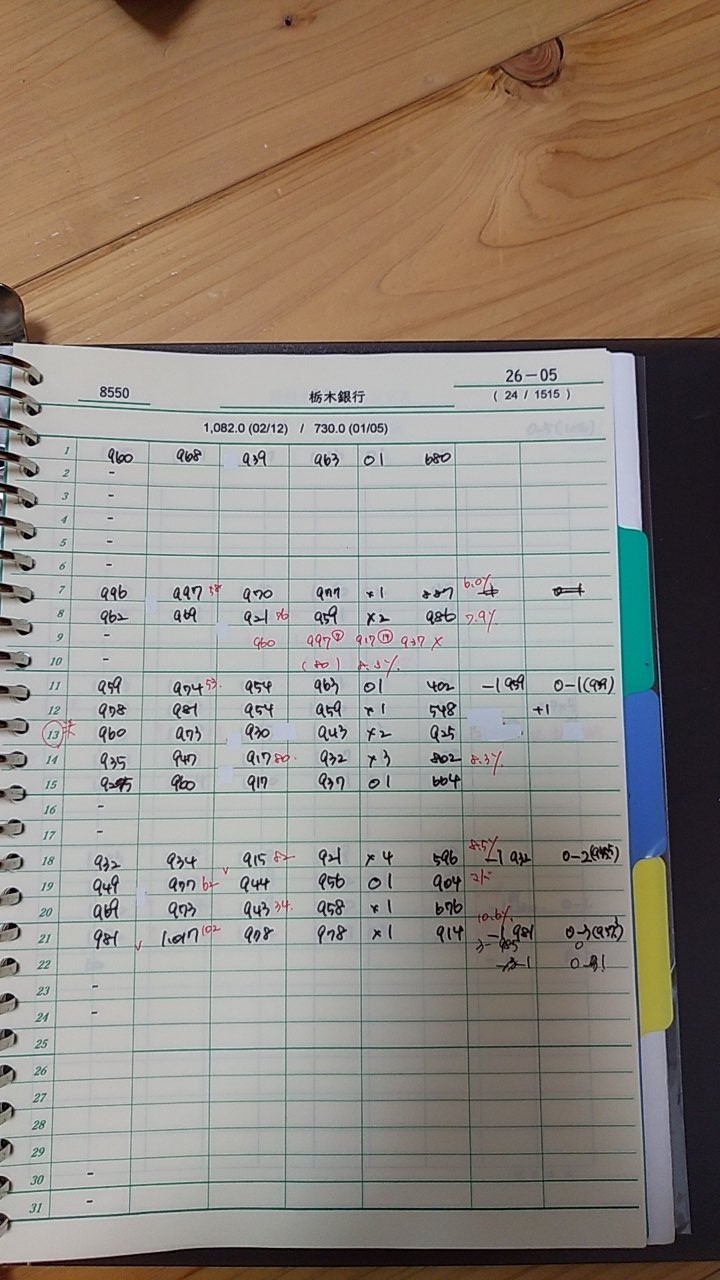 26-05
8550 栃木銀行 ( 24 / 1515 )
1,082.0 (02/12) / 730.0 (01/05)
1 960 968 939 963 01 680
2 -
3 -
4 -
5 -
6 -
7 996 997 970 977 x1 887 6.0%
8 962 969 921 56 959 x2 986 7.9%
9 - 960 997 917 937 x
10 - (80) 8.3%
11 959 974 53. 954 963 01 402 -1 959 0-1(959)
12 978 981 954 959 x1 548 +1
13 960 973 930 943 x2 925
14 935 947 917 80. 932 x3 802 8.3%
15 960 917 937 01 664
16 -
17 -
18 932 934 915 82 921 x4 596 8.5% -1 932
19 949 977 62 944 956 01 904
20 969 973 943 34. 958 x1 676
21 981 1.017 102 978 978 x1 914 10.6% -1 981
22
23 -
24 -
25
26
27
28
29
30 -
31 -